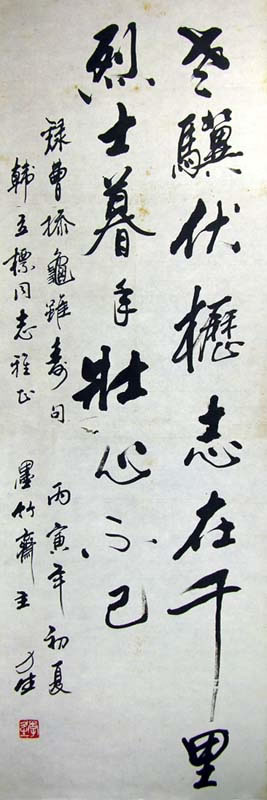 老驥伏櫪志在千里
烈士暮年壯心不已
錄曹操龜雖壽句 丙寅年初夏
韩立標同志雅正 墨竹齋主